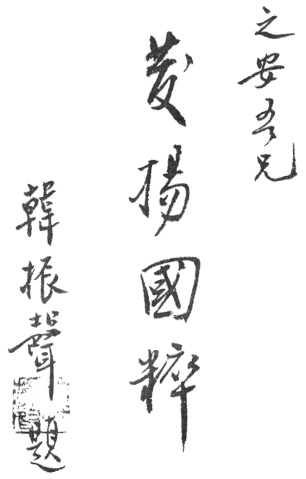 之安吾兄
發揚國粹
韓振聲題